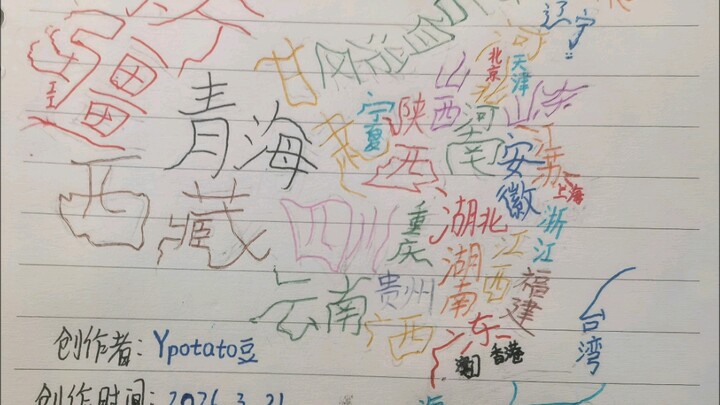 辽宁
新疆
甘肃
内蒙古
北京
天津
河北
山西
山东
宁夏
陕西
河南
青海
江苏
安徽
上海
西藏
四川
重庆
湖北
浙江
江西
湖南
云南
贵州
福建
广西
广东
台湾
香港
创作者：Ypotato豆
创作时间：2026.3.21
海